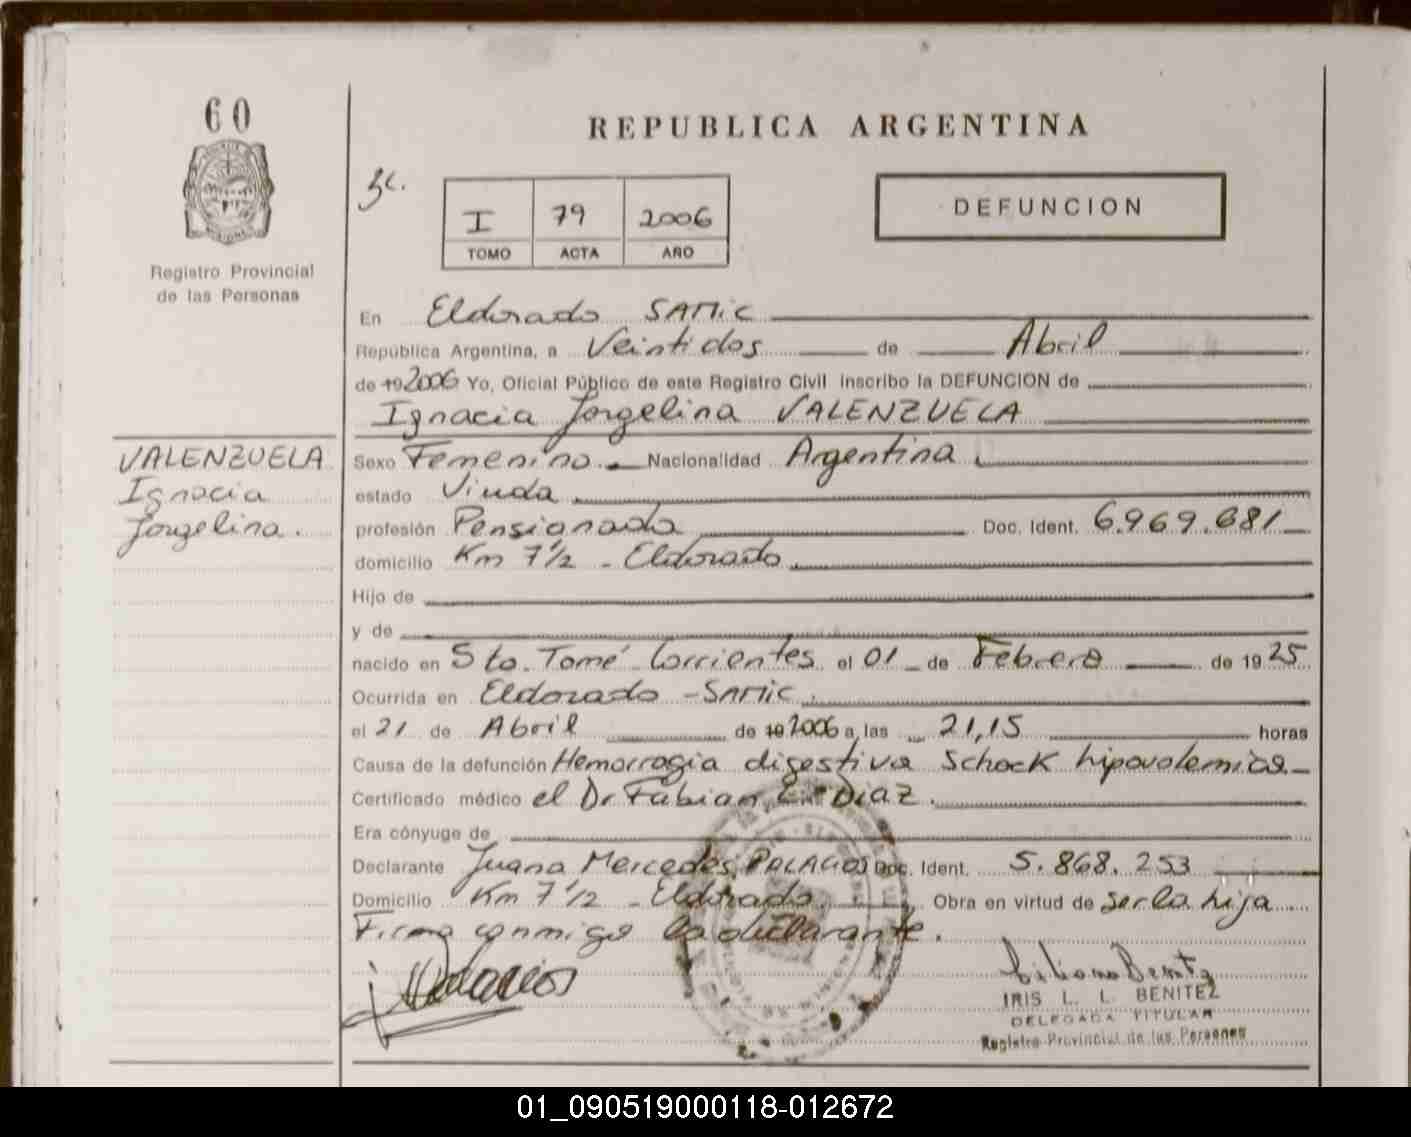 60
REPUBLICA ARGENTINA
I 79 2006
TOMO ACTA AÑO
DEFUNCION
Registro Provincial
de las Personas
En Eldorado SAMic
República Argentina, a Veintidos de Abril
de 192006 Yo, Oficial Público de este Registro Civil inscribo la DEFUNCION de
Ignacia Jorgelina VALENZUELA
VALENZUELA
Ignacia
Jorgelina.
Sexo Femenino. Nacionalidad Argentina
estado Viuda
profesión Pensionada Doc. Ident. 6.969.681
domicilio Km 7 1/2 - Eldorado
Hijo de
y de
nacido en Sto. Tomé Corrientes el 01 de Febrero de 1925
Ocurrida en Eldorado - SAMic.
el 21 de Abril de 192006 a las 21,15 horas
Causa de la defunción Hemorragia digestiva Schock hipovolemica
Certificado médico el Dr. Fabian E. DiAZ.
Era cónyuge de
Declarante Juana Mercedes PALACIOS Doc. Ident. 5.868.253
Domicilio Km 7 1/2 - Eldorado. Obra en virtud de ser la hija
Firma conmigo la declarante.
IRIS L. L. BENITEZ
DELEGADA TITULAR
Registro Provincial de las Personas
01_090519000118-012672